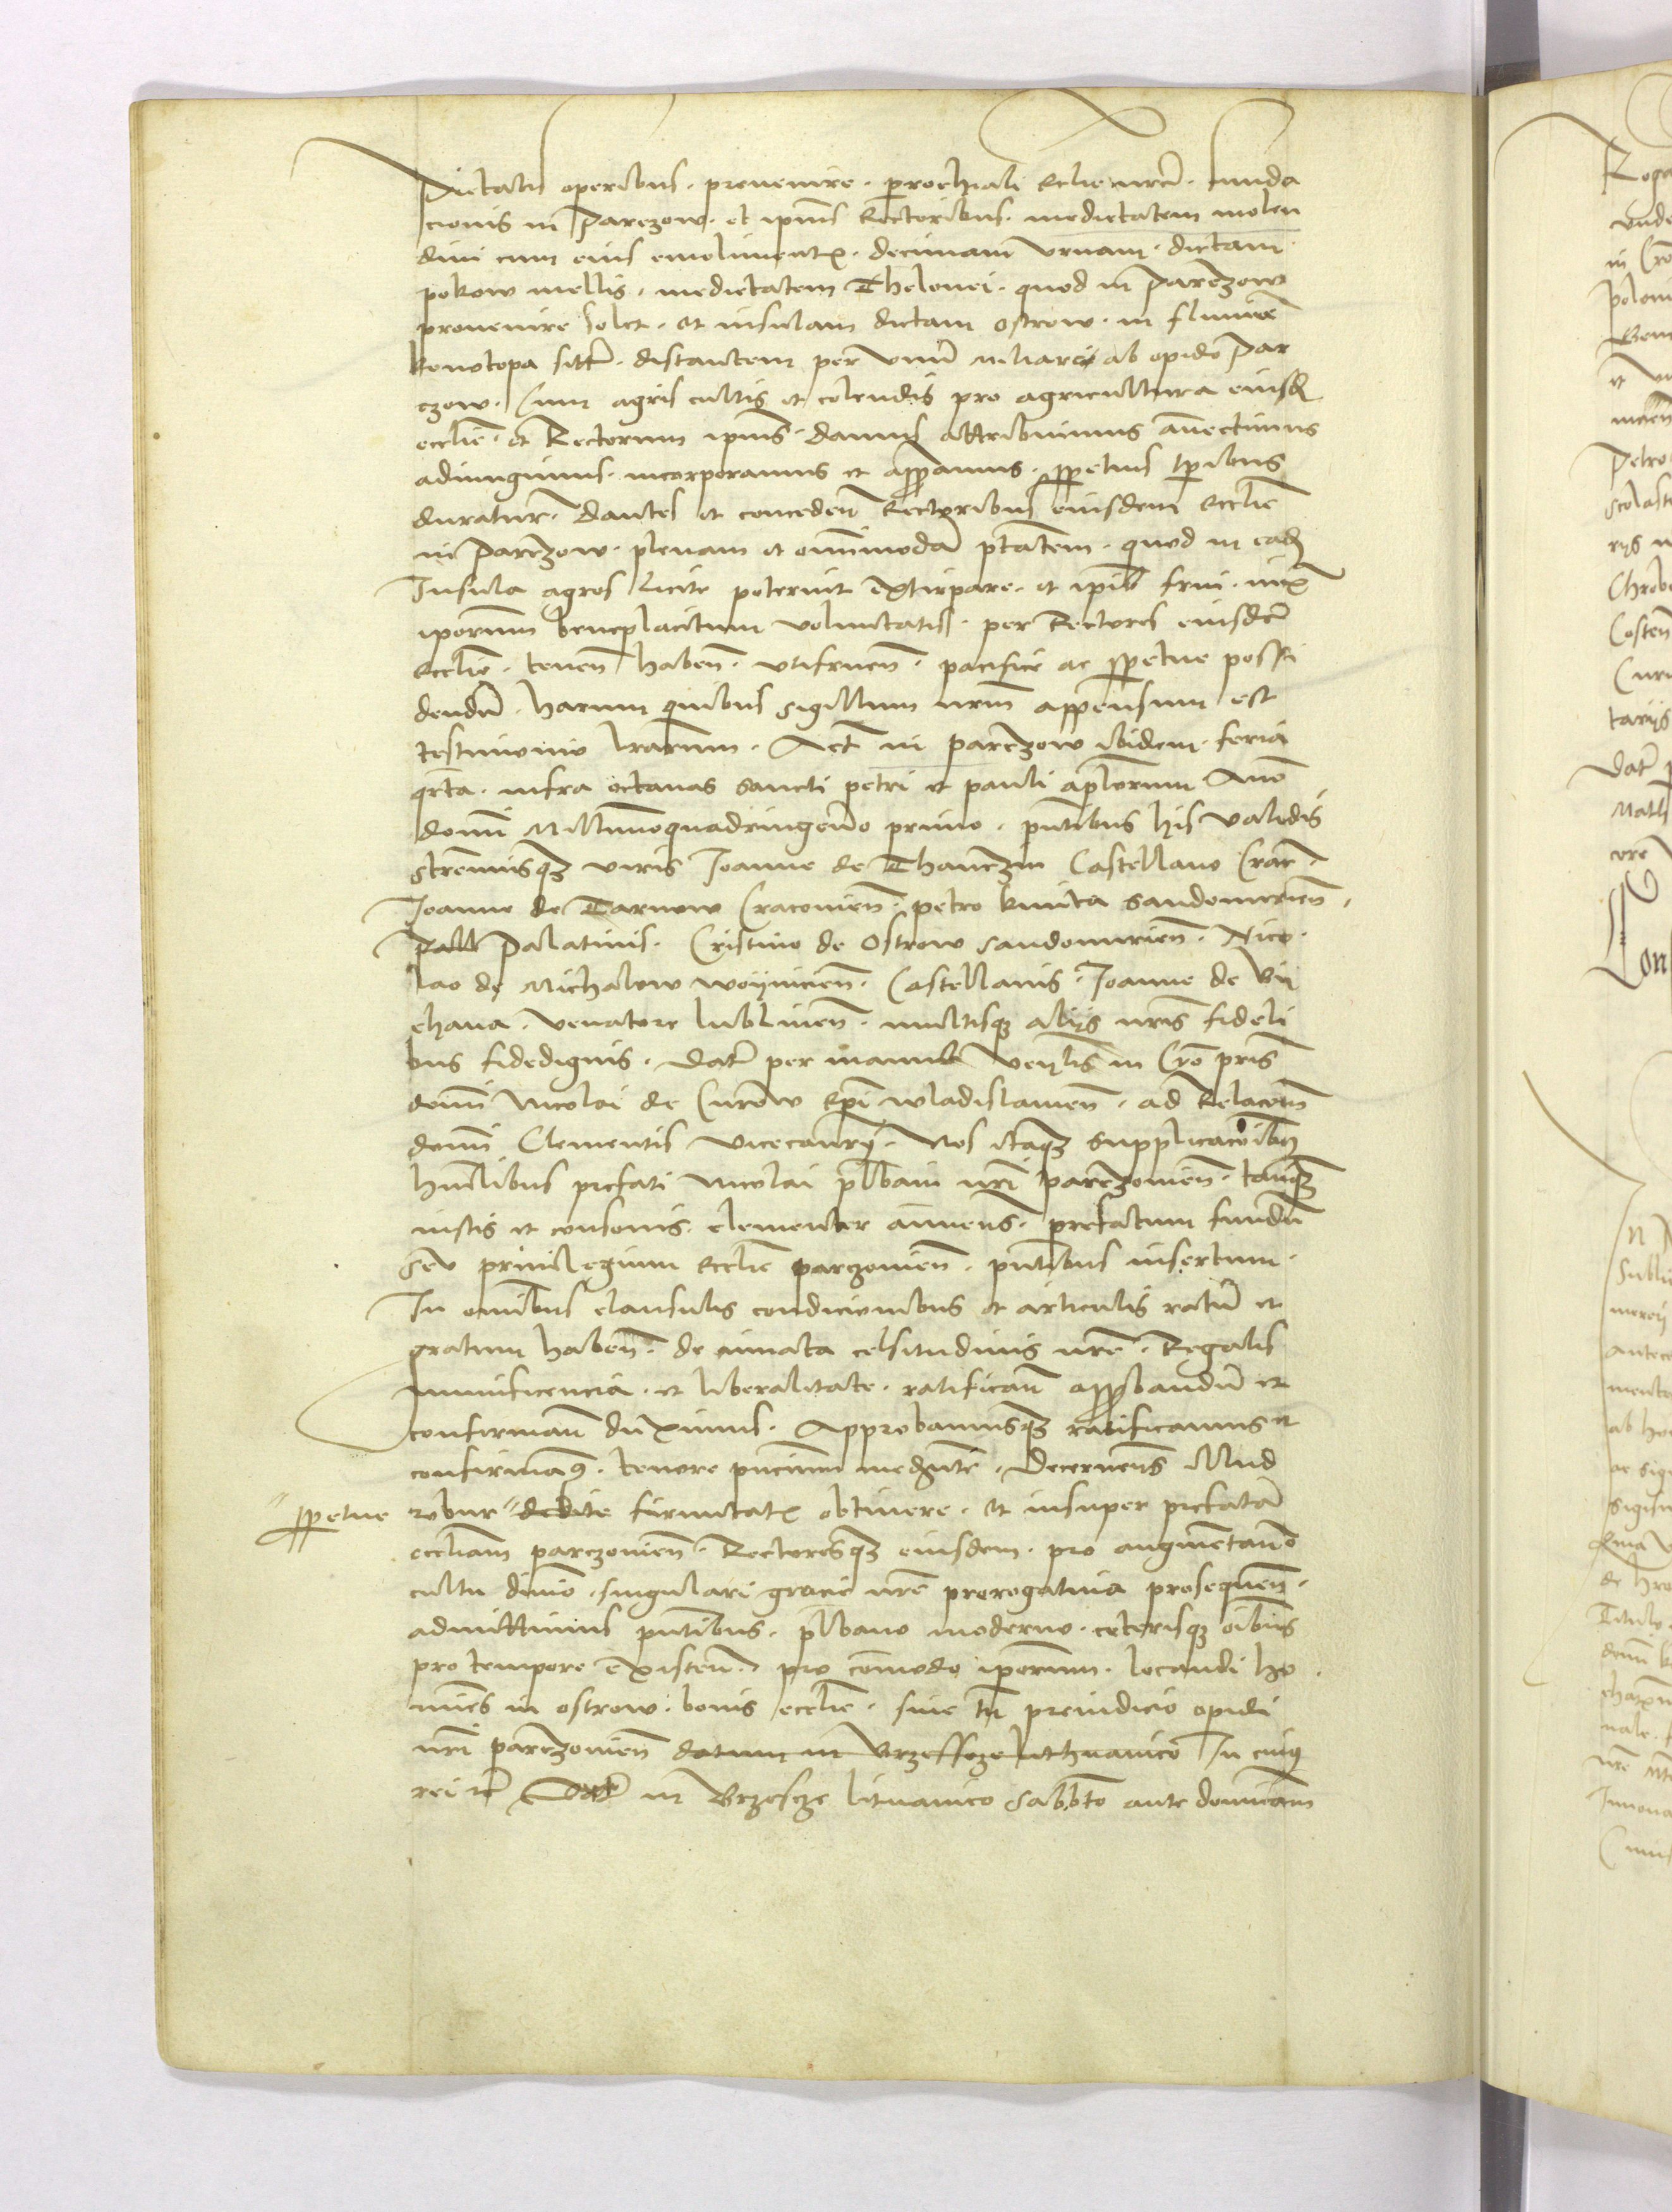 Pietatis operibus · prouenire · parochiali Ecclie nre · funda
cionis in Parczow · et ipius Rectoribus · medietatem molen
dini cum eius emolimentis · decimam vrnam · dictam
pokow mellis · medietatem Thelonei · quod in Parczow
prouenire solet · et insulam dictam ostrow · in flumine
konotopa sittam · distantem per vnum miliare ab opido Par
czow · Cum agris cultis et colendis pro agricultura eiusd
ecclie · et Rectorum ipius · damus attribuimus annectimus
adiungimus · incorporamus et approamus · pperetuis tpribus
duratur · dantes et conceden Rectoribus eiusdem Ecclie
in Parczow · plenam et omnimoda ptatem · quod in eadem
Insula agros licite poterint extirpare · et ipis frui · iuxta
iporum beneplacitum voluntatis · per Rectores eiusdem
Ecclie · tenen haben · vtifruen · pacifice ac pperetue possi
dendum · harum quibus sigillum nrum appensum est
testimonio lrarum · Act in parczow ibidem · feria
qrta · infra octauas sancti petri et pauli aplorum Anno
domini Millimoquadringeno primo · pntibus his validis
strennuisqz viris Joanne de Thanczin Castellano Crac ·
Joanne de Tarnow Cracouien · petro kmita sandomirien ·
Pall Palatinis · Cristino de Ostrow sandomirien · Nico ·
lao de Michalow woynicien · Castellanis · Joanne de By
chaua · venatore lublinen · multisqz alijs nris fideli
bus fidedignis · Datum per manus venlis in Cro pris
domini Nicolai de Curow Epi wladislauien · ad Relacoem
domini Clementis vicecancrij · Nos itaqz supplicacoibus
humlibus prefati Nicolai plbani nri parczouien · tanqz
iustis et consonis clementer annuens · prefatum fundum
seu priuilegium Ecclie parczouien · pntibus insertum ·
In omnibus clausulis condicionibus et articulis ratum et
gratum haben · de innata celsitudinis nre · Regalis
munificencia · et liberalitate · ratifican approbandum et
confirman duximus · Approbamusqz ratificamus et
confirmamus · tenore pncium mediante · Decernens illud
pperetue robur debite firmitatis obtinere · et insuper prefatam
eccliam parczouien · Rectoresqz eiusdem · pro augmentanco
cultu diuino · singulari gracie nre prerogatiua prosequen ·
admittimus pntibus · plbano moderno · ceterisqz oibus
pro tempore existen · pro commodo iporum · locandi ho ·
mines in ostrow · bonis ecclie · sine tn preiudicio opidi
nri parczouien datum in Brzesscze litthuanico In cuius
rei rc Dat in Brzescze lituanico Sabbto ante dominicam